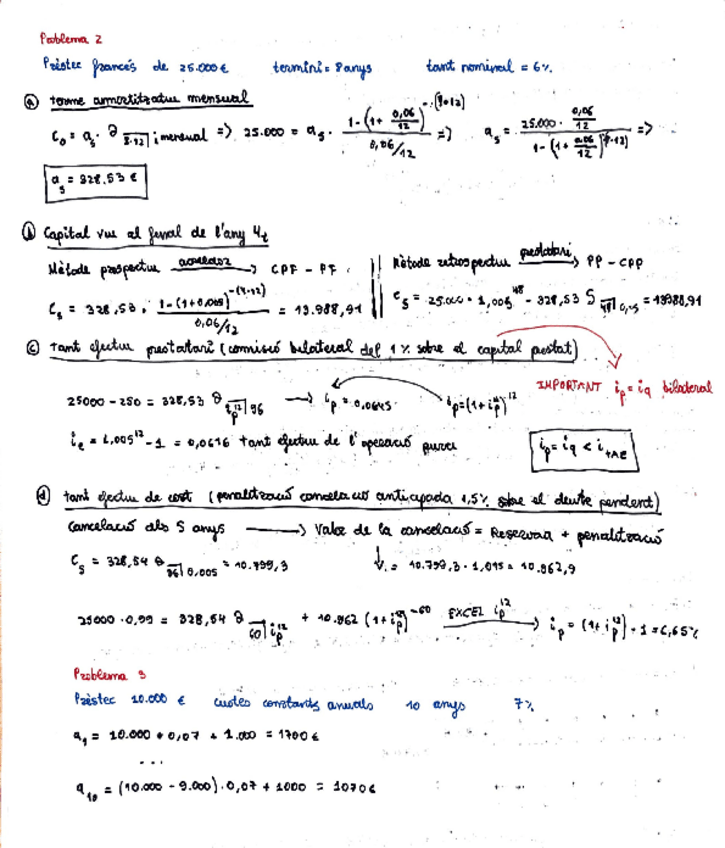 Problema 2
Préstec francés de 25.000 € termini = 8 anys tant nominal = 6%
a) terme amortitzatiu mensual
C₀ = aₛ · a 8·12| i mensual => 25.000 = aₛ · (1-(1+0,06/12)^-(8·12)) / (0,06/12) => aₛ = (25.000 · 0,06/12) / (1-(1+0,06/12)^-(8·12)) =>
aₛ = 328,53 €
b) Capital viu al final de l'any 4
Mètode prospectiu creedor → CPF - PF || Mètode retrospectiu prestatari → PP - CPP
Cₛ = 328,53 · (1-(1+0,005)^-(4·12)) / (0,06/12) = 13.988,91 || Cₛ = 25.000 · 1,005^48 - 328,53 S 48| 0,05 = 13988,91
c) Tant efectiu prestatari (comissió bilateral del 1% sobre el capital prestat)
IMPORTANT iₚ = iq bilateral
25000 - 250 = 328,53 a 96| iₚ^12 → iₚ = 0,0645 iₚ = (1+iₚ^12)^12
iₑ = 1,005^12 - 1 = 0,0616 tant efectiu de l'operació pura
iₚ = iq < i TAE
d) tant efectiu de cost (penalització cancelació anticipada 1,5% sobre el deute pendent)
Cancelació als 5 anys → Valor de la cancelació = Reserva + penalització
Cₛ = 328,54 a 36| 0,005 = 10.799,3 ↓ = 10.799,3 · 1,015 = 10.962,9
25000 · 0,99 = 328,54 a 60| iₚ^12 + 10.962 (1+iₚ^12)^-60 EXCEL iₚ^12 → iₚ = (1+iₚ^12) - 1 = 6,65%
Problema 3
Préstec 10.000 € cuotes constants anuals 10 anys 7%
a₁ = 10.000 · 0,07 + 1.000 = 1700 €
...
a₁₀ = (10.000 - 9.000) · 0,07 + 1000 = 1070 €